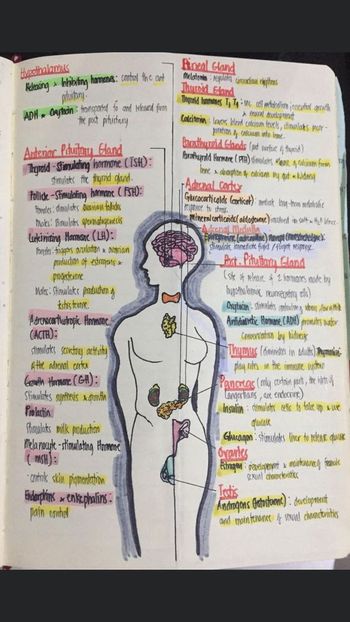 Hypothalamus
Releasing & Inhibiting hormones: control the ant
pituitary.
ADH & Oxytocin: transported to and released from
the post pituitary
Anterior Pituitary Gland
Thyroid-Stimulating hormone (TSH):
stimulates the thyroid gland.
Follicle-Stimulating hormone (FSH):
Females: stimulates ovarian follicles
Males: stimulates spermatogenesis
Luteinizing Hormone (LH):
Females: triggers ovulation & ovarian
production of estrogens &
progesterone
Males: Stimulates production of
testosterone.
Adrenocorticotropic Hormone
(ACTH):
stimulates secretory activity
of the adrenal cortex
Growth Hormone (GH):
Stimulates synthesis & growth
Prolactin:
Stimulates milk production
Melanocyte-stimulating Hormone
(MSH):
controls skin pigmentation
Endorphins & enkephalins:
pain control
Pineal Gland
Melatonin: regulates circadian rhythms
Thyroid Gland
Thyroid hormones T3 T4: inc. cell metabolism; essential growth
& neural development
Calcitonin: lowers blood calcium levels, stimulates incor-
poration of calcium into bone.
Parathyroid Glands (post surface of thyroid)
Parathyroid Hormone (PTH): stimulates release of calcium from
bone & absorption of calcium by gut & kidney
Adrenal Cortex
Glucocorticoids (cortisol): mediate long-term metabolic
response to stress.
Mineralocorticoid (aldosterone): involved in salt & H2O balance.
Adrenal Medulla
Epinephrine (adrenaline) Norepi (noradrenaline):
stimulate immediate fluid / flight response
Post. Pituitary Gland
(site of release of 2 hormones made by
hypothalamic neurosecretory cells)
Oxytocin: stimulates contractions
Antidiuretic Hormone (ADH): promotes water
conservation by kidneys
Thymus (diminishes in adults) Thymosin:
play roles in the immune system
Pancreas (only certain parts, the islets of
Langerhans, are endocrine)
Insulin: stimulates cells to take up & use
glucose
Glucagon: stimulates liver to release glucose
Ovaries
Estrogen: development & maintenance of female
sexual characteristics
Testis
Androgens (testosterone): development
and maintenance of sexual characteristics